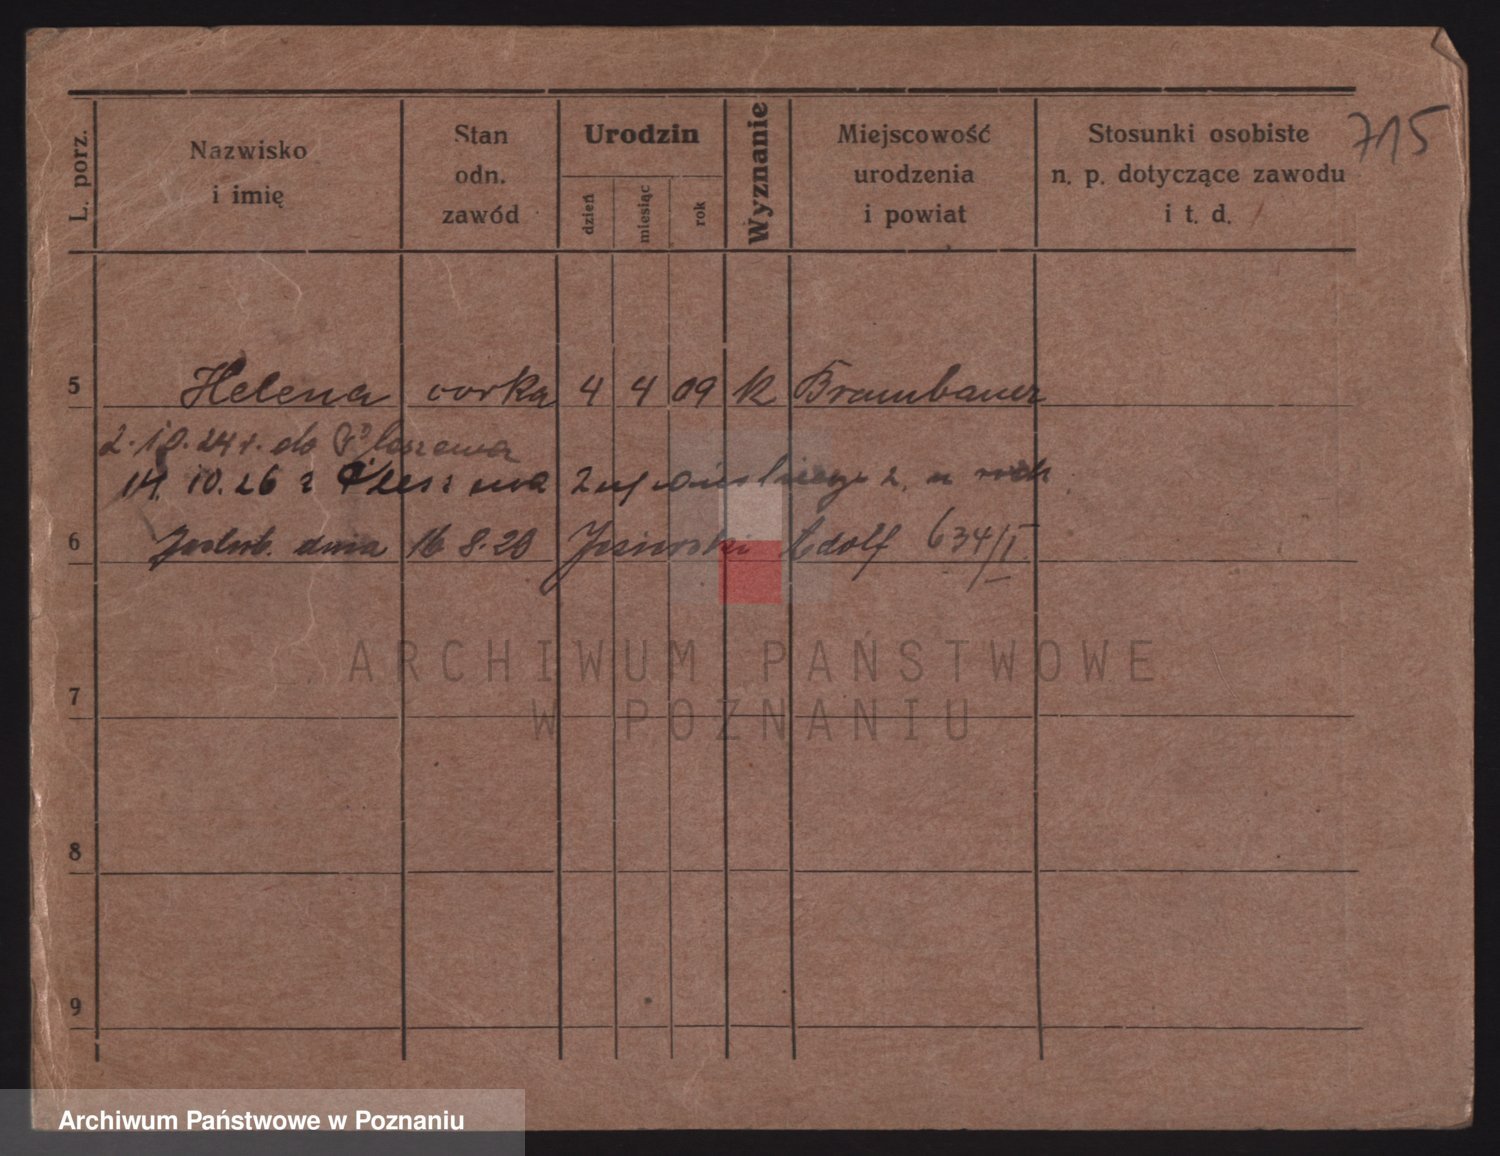 715
L. porz.
Nazwisko
i imię
Stan
odn.
zawód
Urodzin
dzień
miesiąc
rok
Wyznanie
Miejscowość
urodzenia
i powiat
Stosunki osobiste
n. p. dotyczące zawodu
i t. d.
5 Helena corka 4 4 09 k Brambauer
2.10.24 r. do
14. 10. 26 z 2.
6 dnia 16 8.20 Adolf 634/I
ARCHIWUM PAŃSTWOWE
W POZNANIU
7
8
9
Archiwum Państwowe w Poznaniu